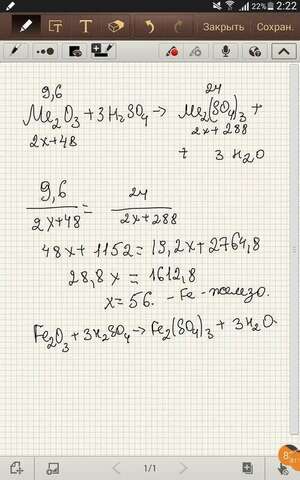 22% 2:22
Закрыть Сохран.
9,6 24
Me₂O₃ + 3H₂SO₄ → Me₂(SO₄)₃ +
2x+48 2x+288
+ 3 H₂O
9,6 / 2x+48 = 24 / 2x+288
48x + 1152 = 19,2x + 2764,8
28,8x = 1612,8
x = 56. - Fe - железо.
Fe₂O₃ + 3H₂SO₄ → Fe₂(SO₄)₃ + 3H₂O
1/1